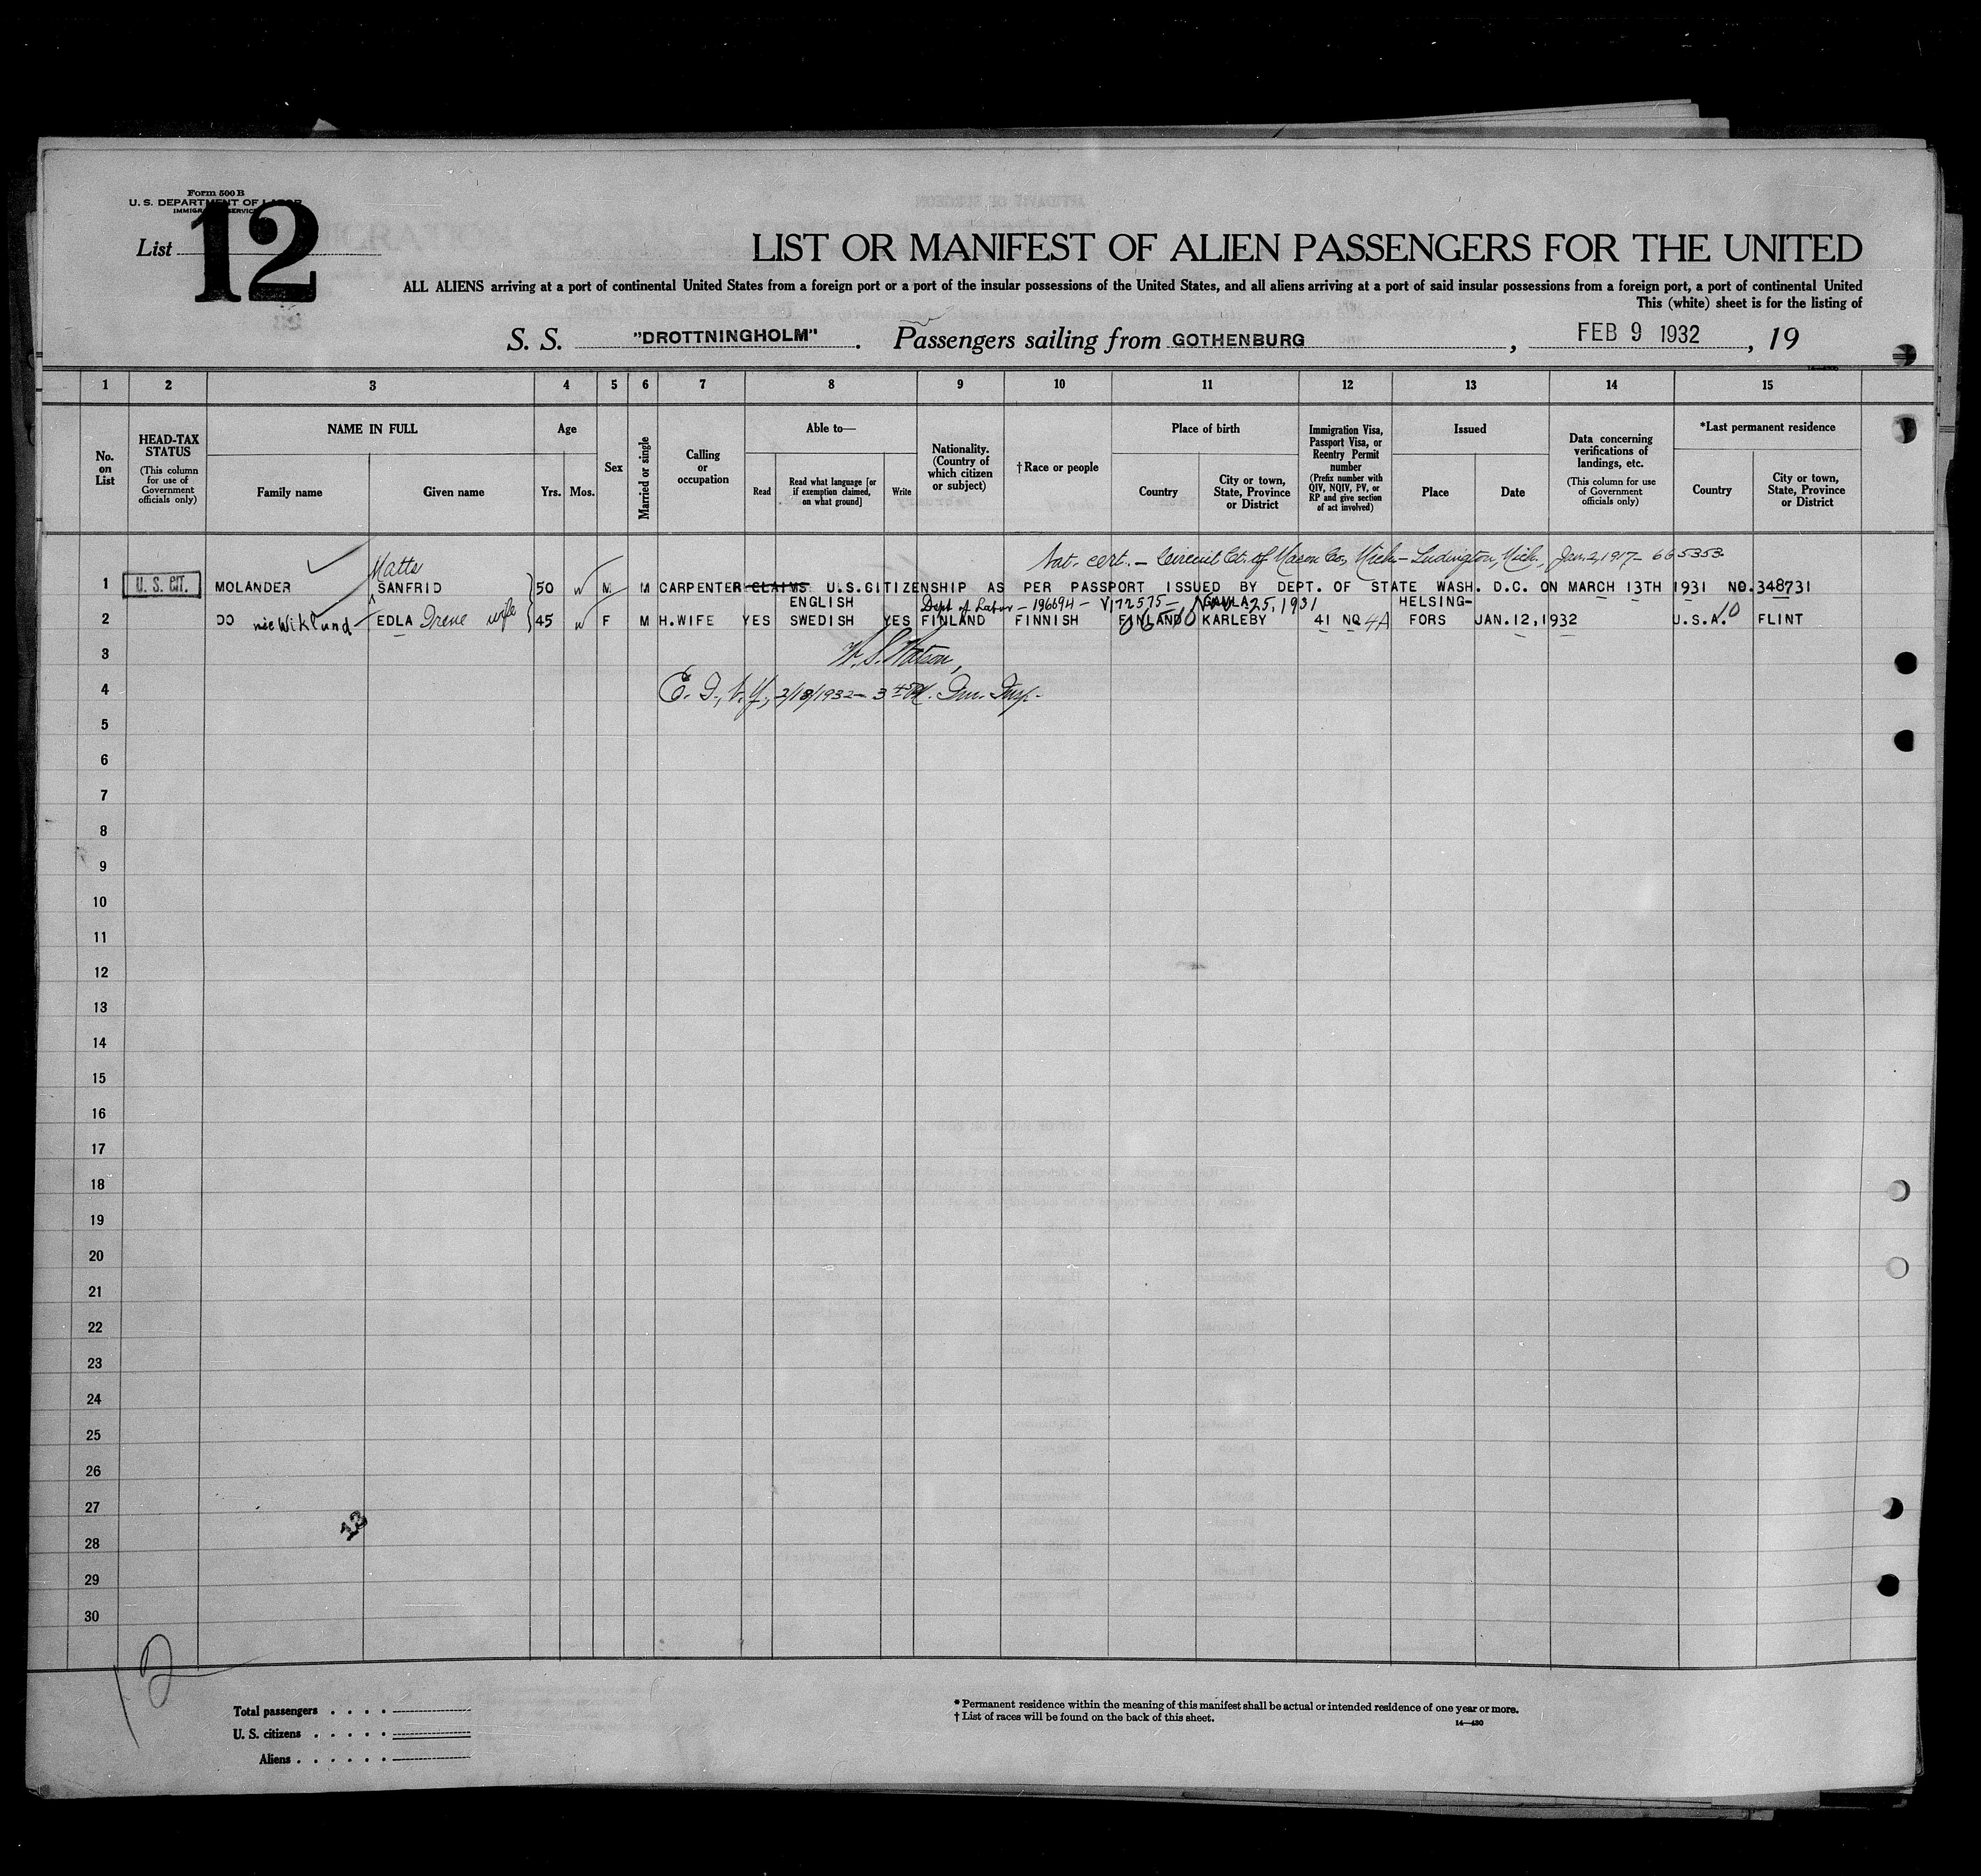 Form 500 B
U. S. DEPARTMENT OF LABOR
IMMIGRATION SERVICE
List 12
LIST OR MANIFEST OF ALIEN PASSENGERS FOR THE UNITED
ALL ALIENS arriving at a port of continental United States from a foreign port or a port of the insular possessions of the United States, and all aliens arriving at a port of said insular possessions from a foreign port, a port of continental United
This (white) sheet is for the listing of
S. S. "DROTTNINGHOLM". Passengers sailing from GOTHENBURG, FEB 9 1932, 19
1 2 3 4 5 6 7 8 9 10 11 12 13 14 15
No. on List
HEAD-TAX STATUS (This column for use of Government officials only)
NAME IN FULL
Family name
Given name
Age
Yrs. Mos.
Sex
Married or single
Calling or occupation
Able to—
Read
Read what language [or if exemption claimed, on what ground]
Write
Nationality. (Country of which citizen or subject)
†Race or people
Place of birth
Country
City or town, State, Province or District
Immigration Visa, Passport Visa, or Reentry Permit number (Prefix number with QIV, NQIV, PV, or RP and give section of act involved)
Issued
Place
Date
Data concerning verifications of landings, etc. (This column for use of Government officials only)
*Last permanent residence
Country
City or town, State, Province or District
Matts
Nat. cert. – Circuit Ct. of Mason Co, Mich – Ludington, Mich., Jan. 2, 1917 – 665353
1 U. S. CIT. MOLANDER SANFRID 50 M M CARPENTER CLAIMS U.S.CITIZENSHIP AS PER PASSPORT ISSUED BY DEPT. OF STATE WASH. D.C. ON MARCH 13TH 1931 NO.348731
ENGLISH Dept of Labor – 196694 – V172575 – GAMLA Nov 25, 1931 HELSING-
2 DO née Wiklund EDLA Irene wife 45 F M H.WIFE YES SWEDISH YES FINLAND FINNISH FINLAND KARLEBY 41 NQ 4A FORS JAN.12,1932 U.S.A. 10 FLINT
3
W. S. Watson,
4
2/18/1932
5
6
7
8
9
10
11
12
13
14
15
16
17
18
19
20
21
22
23
24
25
26
27
13
28
29
30
12
Total passengers . . . .
U. S. citizens . . . . .
Aliens . . . . . .
* Permanent residence within the meaning of this manifest shall be actual or intended residence of one year or more.
† List of races will be found on the back of this sheet.
14—430